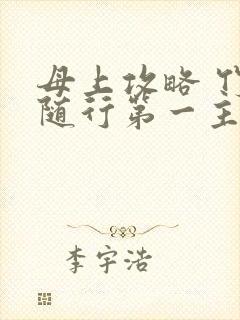 母上攻略
随行第一主
李宇浩